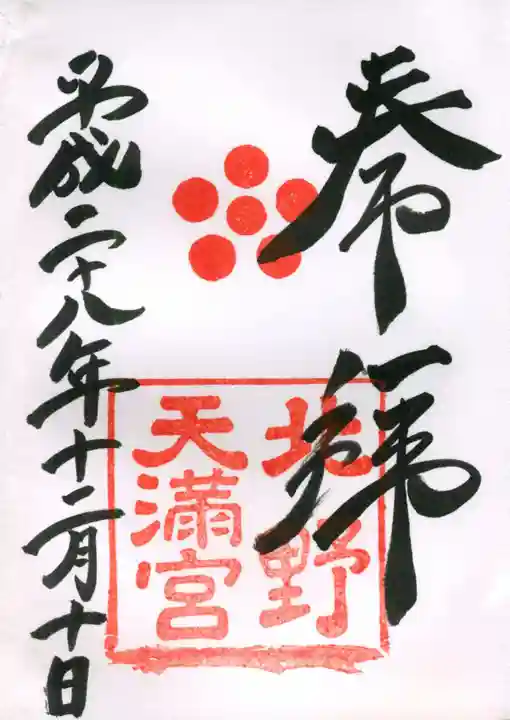 奉拜
北野
天滿宮
平成二十八年十二月十日